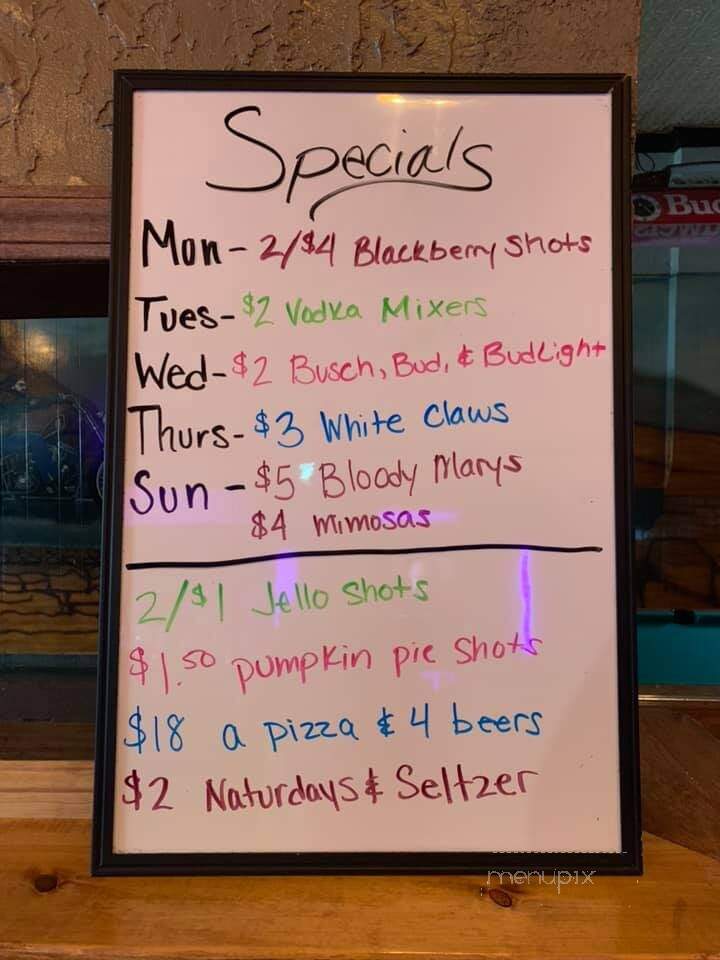 Specials
Mon - 2/$4 Blackberry Shots
Tues - $2 Vodka Mixers
Wed - $2 Busch, Bud, & BudLight
Thurs - $3 White Claws
Sun - $5 Bloody Marys
$4 Mimosas
2/$1 Jello Shots
$1.50 pumpkin pie shots
$18 a pizza & 4 beers
$2 Naturdays & Seltzer
Bud
menupix